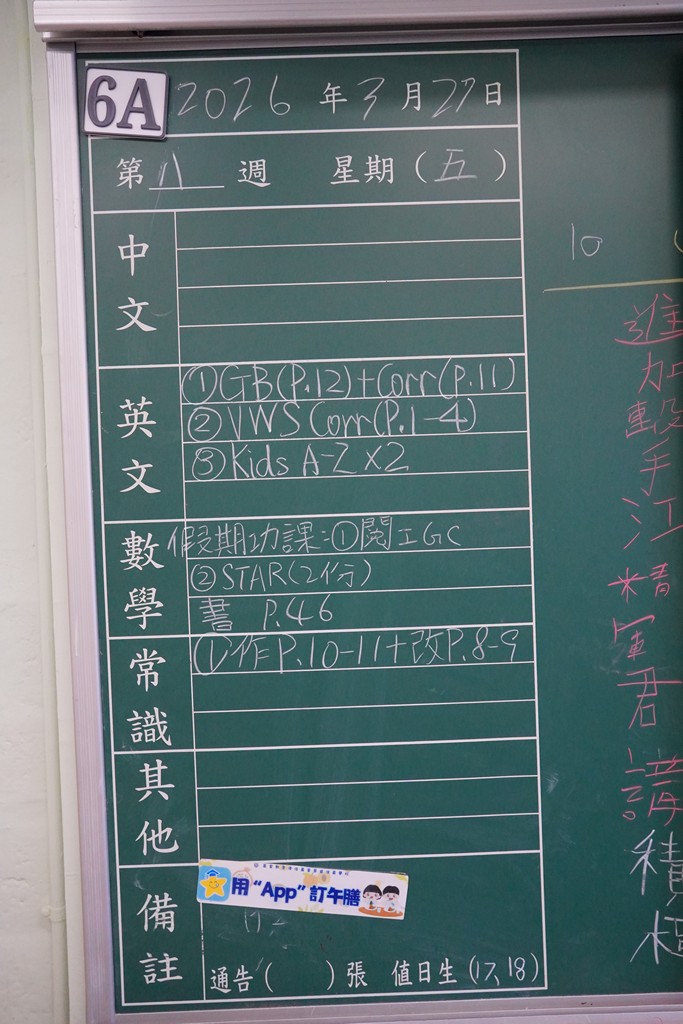 6A 2026 年 3 月 27 日
第 八 週 星期（五）
中文
英文
①GB(P.12)+Corr(P.11)
②VWS Corr(P.1-4)
③Kids A-Z x2
數學
假期功課：①閱工GC
②STAR(2份)
書 P.46
常識
①作P.10-11+改P.8-9
其他
備註
用“App”訂午膳
通告( )張 值日生(17、18)
10
進
加
擊
手
江
精
軍
君
講
積
極